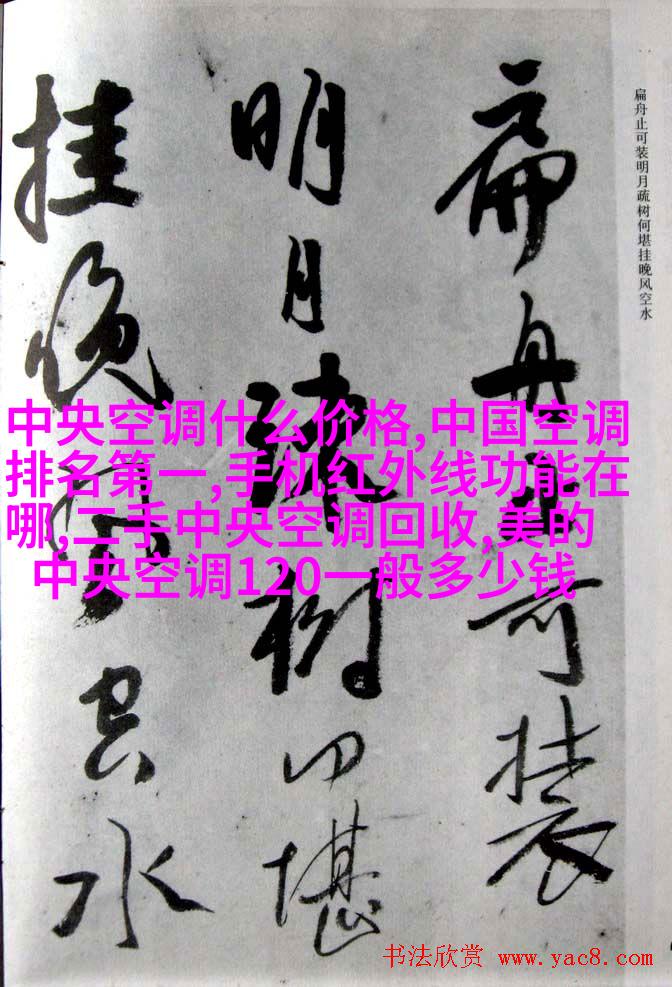 扁舟止可装
明月疏树何堪
挂晚风空水
扁舟止可装明月疏树何堪挂晚风空水
中央空调什么价格,中国空调
排名第一,手机红外线功能在
哪,二手中央空调回收,美的
中央空调120一般多少钱
书法欣赏 www.yac8.com